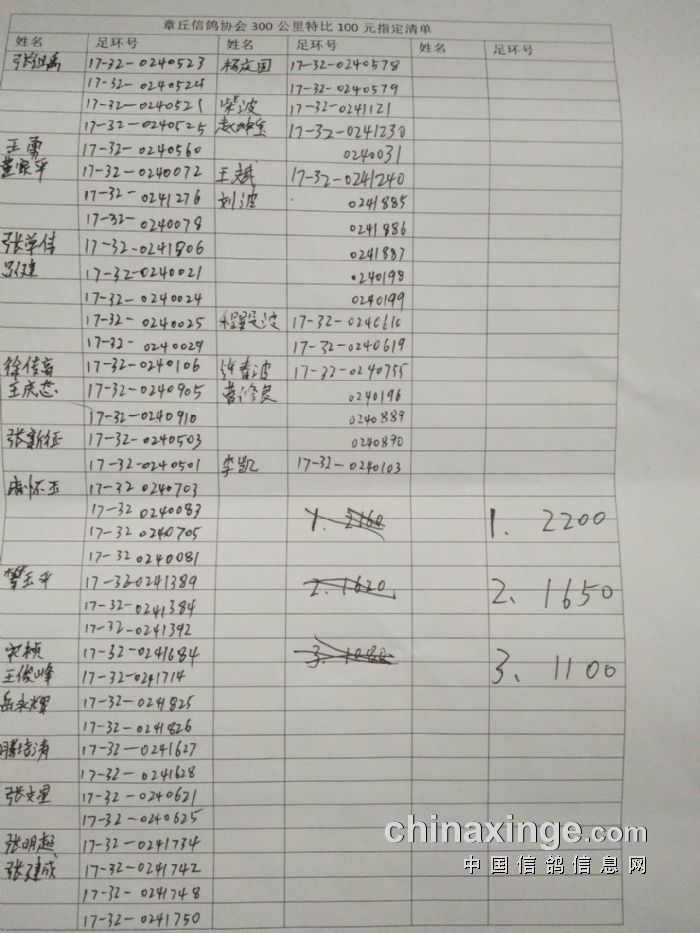 章丘信鸽协会 300 公里特比 100 元指定清单
姓名 足环号 姓名 足环号 姓名 足环号
17-32-0240523 杨庆国 17-32-0240578
17-32-0240524 17-32-0240579
17-32-0240521 柴波 17-32-0241121
17-32-0240525 17-32-0241230
王勇 17-32-0240560 0240031
董家平 17-32-0240072 王斌 17-32-0241240
17-32-0241276 刘波 0241885
17-32-0240078 0241886
张学信 17-32-0241806 0241887
17-32-0240021 0240198
17-32-0240024 0240199
17-32-0240025 17-32-0240610
17-32-0240029 17-32-0240619
徐传富 17-32-0240106 张春波 17-32-0240755
王庆杰 17-32-0240905 曹修良 0240196
17-32-0240910 0240889
张新征 17-32-0240503 0240890
17-32-0240501 李凯 17-32-0240103
17-32 0240703
17-32 0240083 1. 2160 1. 2200
17-32 0240705
17-32 0240081
樊玉平 17-32-0241389 2. 1620 2. 1650
17-32-0241384
17-32-0241392
宋桢 17-32-0241684 3. 1080 3. 1100
王俊峰 17-32-0241714
岳永辉 17-32-0241825
17-32-0241826
滕培涛 17-32-0241627
17-32-0241628
张文星 17-32-0240621
17-32-0240625
张明超 17-32-0241734
张建成 17-32-0241742
17-32-0241748
17-32-0241750
chinaxinge.com
中国信鸽信息网